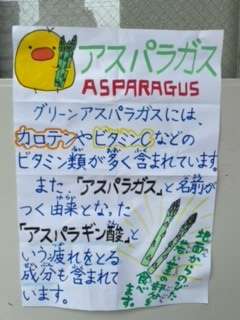 アスパラガス
ASPARAGUS
グリーンアスパラガスには、
カロテンやビタミンCなどの
ビタミン類が多く含まれています。
また、「アスパラガス」と名前が
つく由来となった
「アスパラギン酸」と
いう疲れをとる
成分も含まれて
います。
地面からのびた
若いまの芽が
食べ
ます。